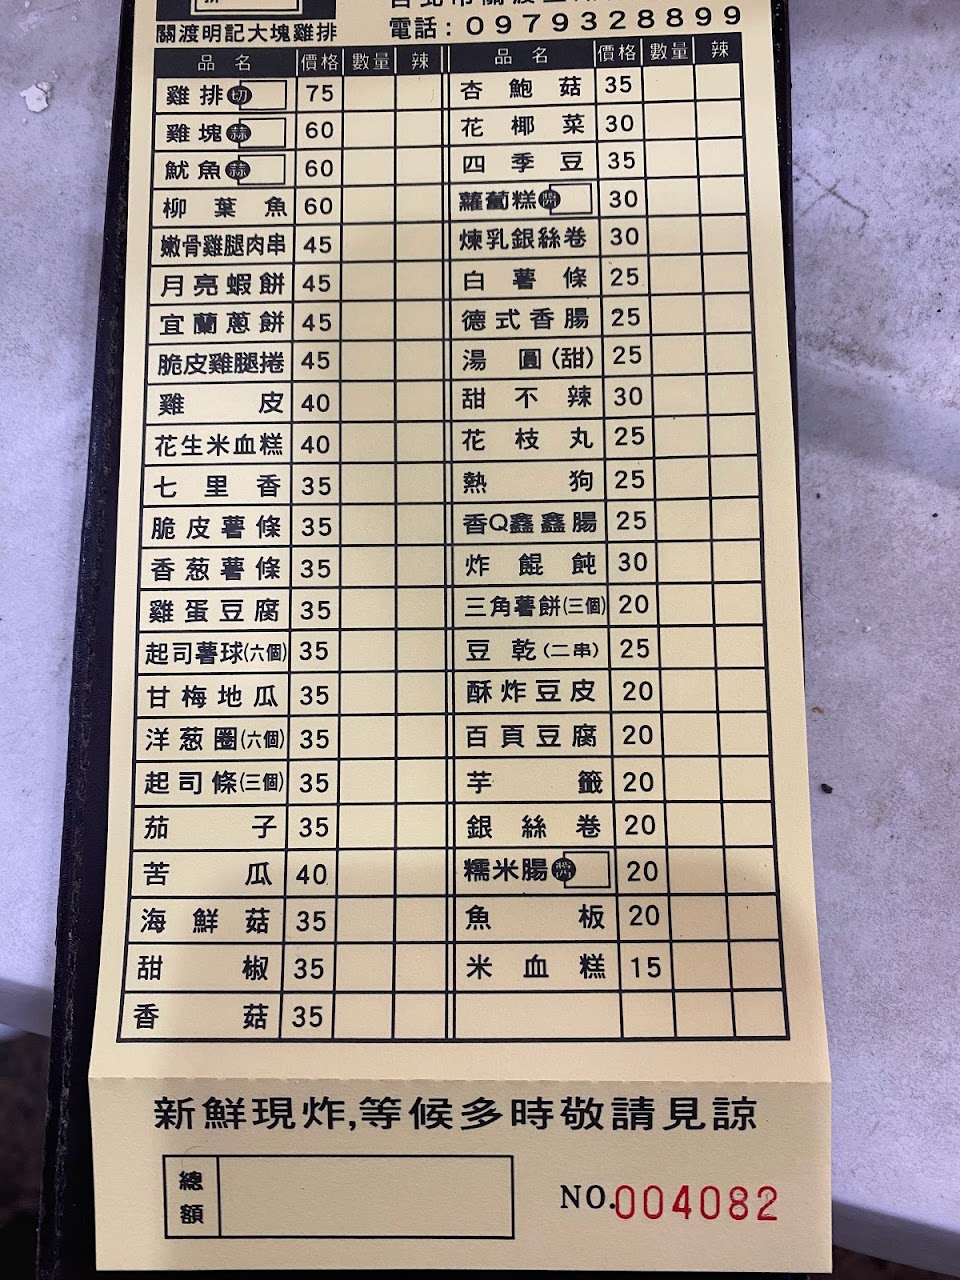 關渡明記大塊雞排
電話:0979328899
品名 價格 數量 辣 品名 價格 數量 辣
雞排 切 75 杏鮑菇 35
雞塊 蒜 60 花椰菜 30
魷魚 蒜 60 四季豆 35
柳葉魚 60 蘿蔔糕 醬 30
嫩骨雞腿肉串 45 煉乳銀絲卷 30
月亮蝦餅 45 白薯條 25
宜蘭蔥餅 45 德式香腸 25
脆皮雞腿捲 45 湯圓(甜) 25
雞皮 40 甜不辣 30
花生米血糕 40 花枝丸 25
七里香 35 熱狗 25
脆皮薯條 35 香Q鑫鑫腸 25
香葱薯條 35 炸餛飩 30
雞蛋豆腐 35 三角薯餅(三個) 20
起司薯球(六個) 35 豆乾(二串) 25
甘梅地瓜 35 酥炸豆皮 20
洋葱圈(六個) 35 百頁豆腐 20
起司條(三個) 35 芋籤 20
茄子 35 銀絲卷 20
苦瓜 40 糯米腸 醬 20
海鮮菇 35 魚板 20
甜椒 35 米血糕 15
香菇 35
新鮮現炸,等候多時敬請見諒
總額
NO.004082